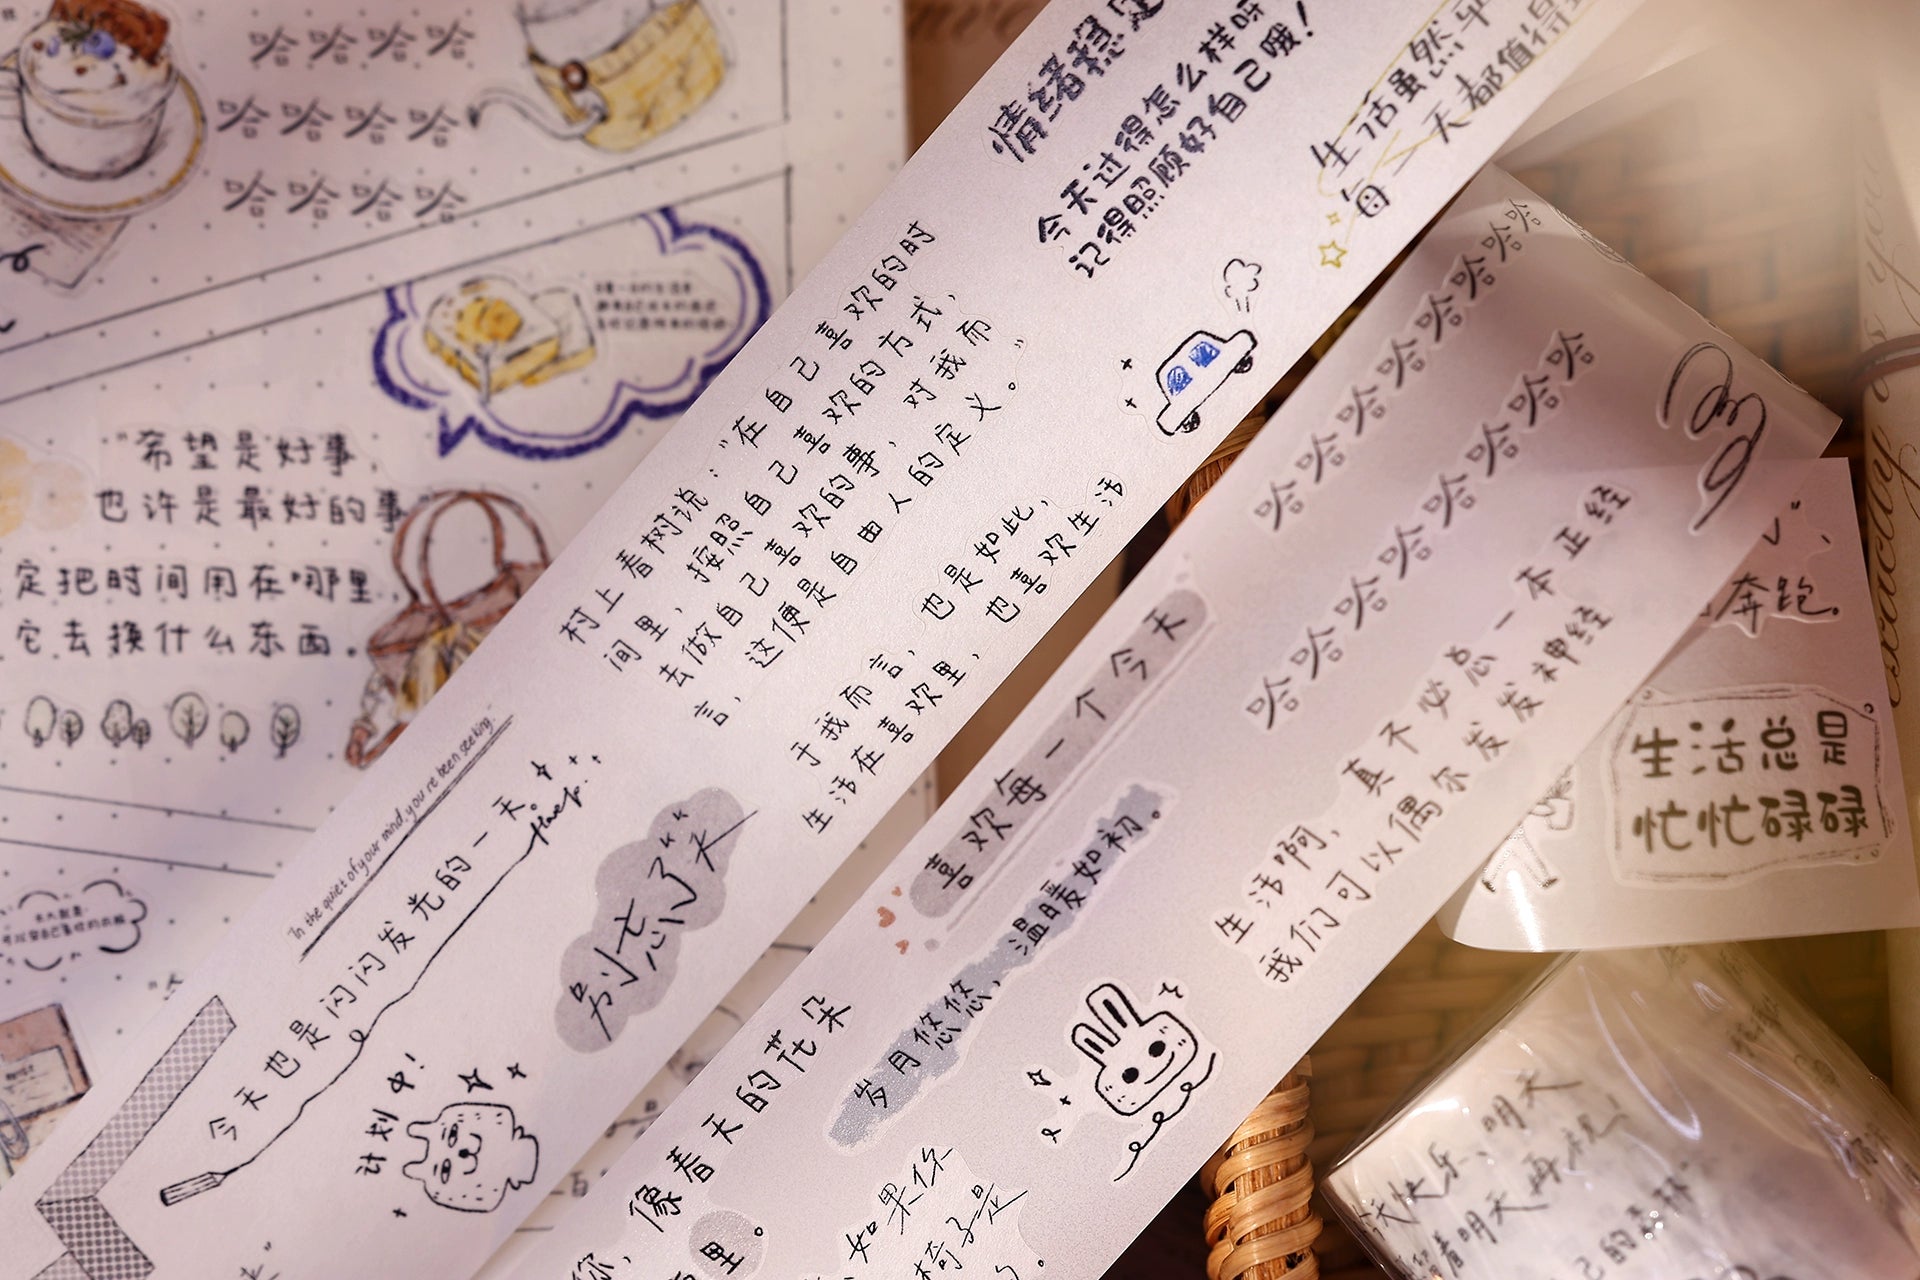 哈哈哈哈
哈哈哈哈
哈哈哈哈
"希望是好事,
也许是最好的事"
定把时间用在哪里,
它去换什么东西。
情绪稳定
今天过得怎么样呀
记得照顾好自己哦!
生活虽然平
每一天都值得
村上春树说:"在自己喜欢的时
间里、按照自己喜欢的方式、
去做自己喜欢的事、对我而
言,这便是自由人的定义。"
于我而言,也是如此,
生活在喜欢里,也喜欢生活
In the quiet of your mind, you're been seeking.
今天也是闪闪发光的一天。
别忘了笑
计划中!
喜欢每一个今天
岁月悠悠,温暖如初。
像春天的花朵
你,
里。
如果你
椅子是
哈哈哈哈哈哈哈
哈哈哈哈哈哈哈哈
生活啊,真不必总一本正经
我们可以偶尔发发神经
奔跑。
生活总是
忙忙碌碌
天快乐、明天
着明天再祝!
己的